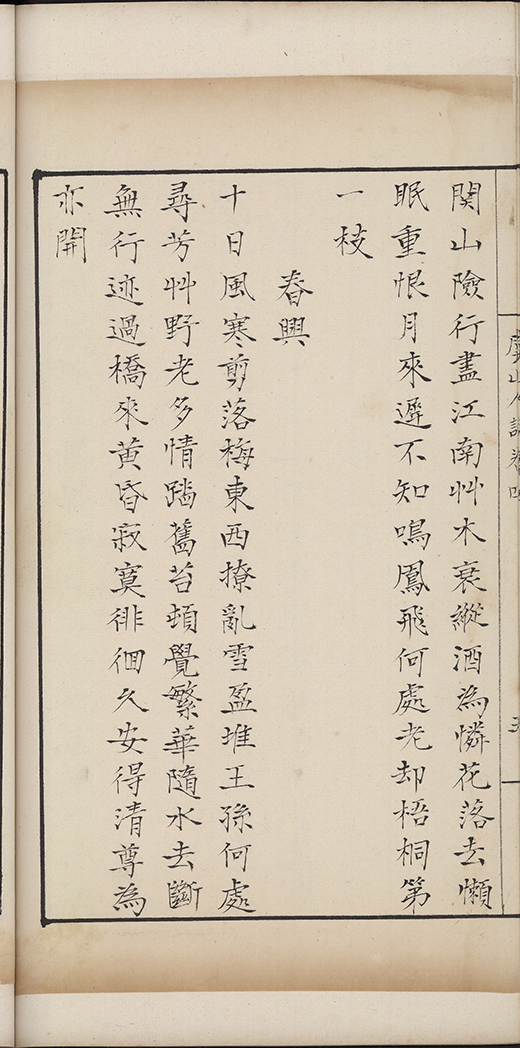 関山險行盡江南艸木衰縱酒為憐花落去懶
眠重恨月來遲不知鳴鳳飛何處老却梧桐第
一枝
春興
十日風寒剪落梅東西撩亂雪盈堆王孫何處
尋芳艸野老多情蹋舊苔頓覺繁華隨水去斷
無行迹過橋來黃昏寂寞徘徊久安得清尊為
亦開